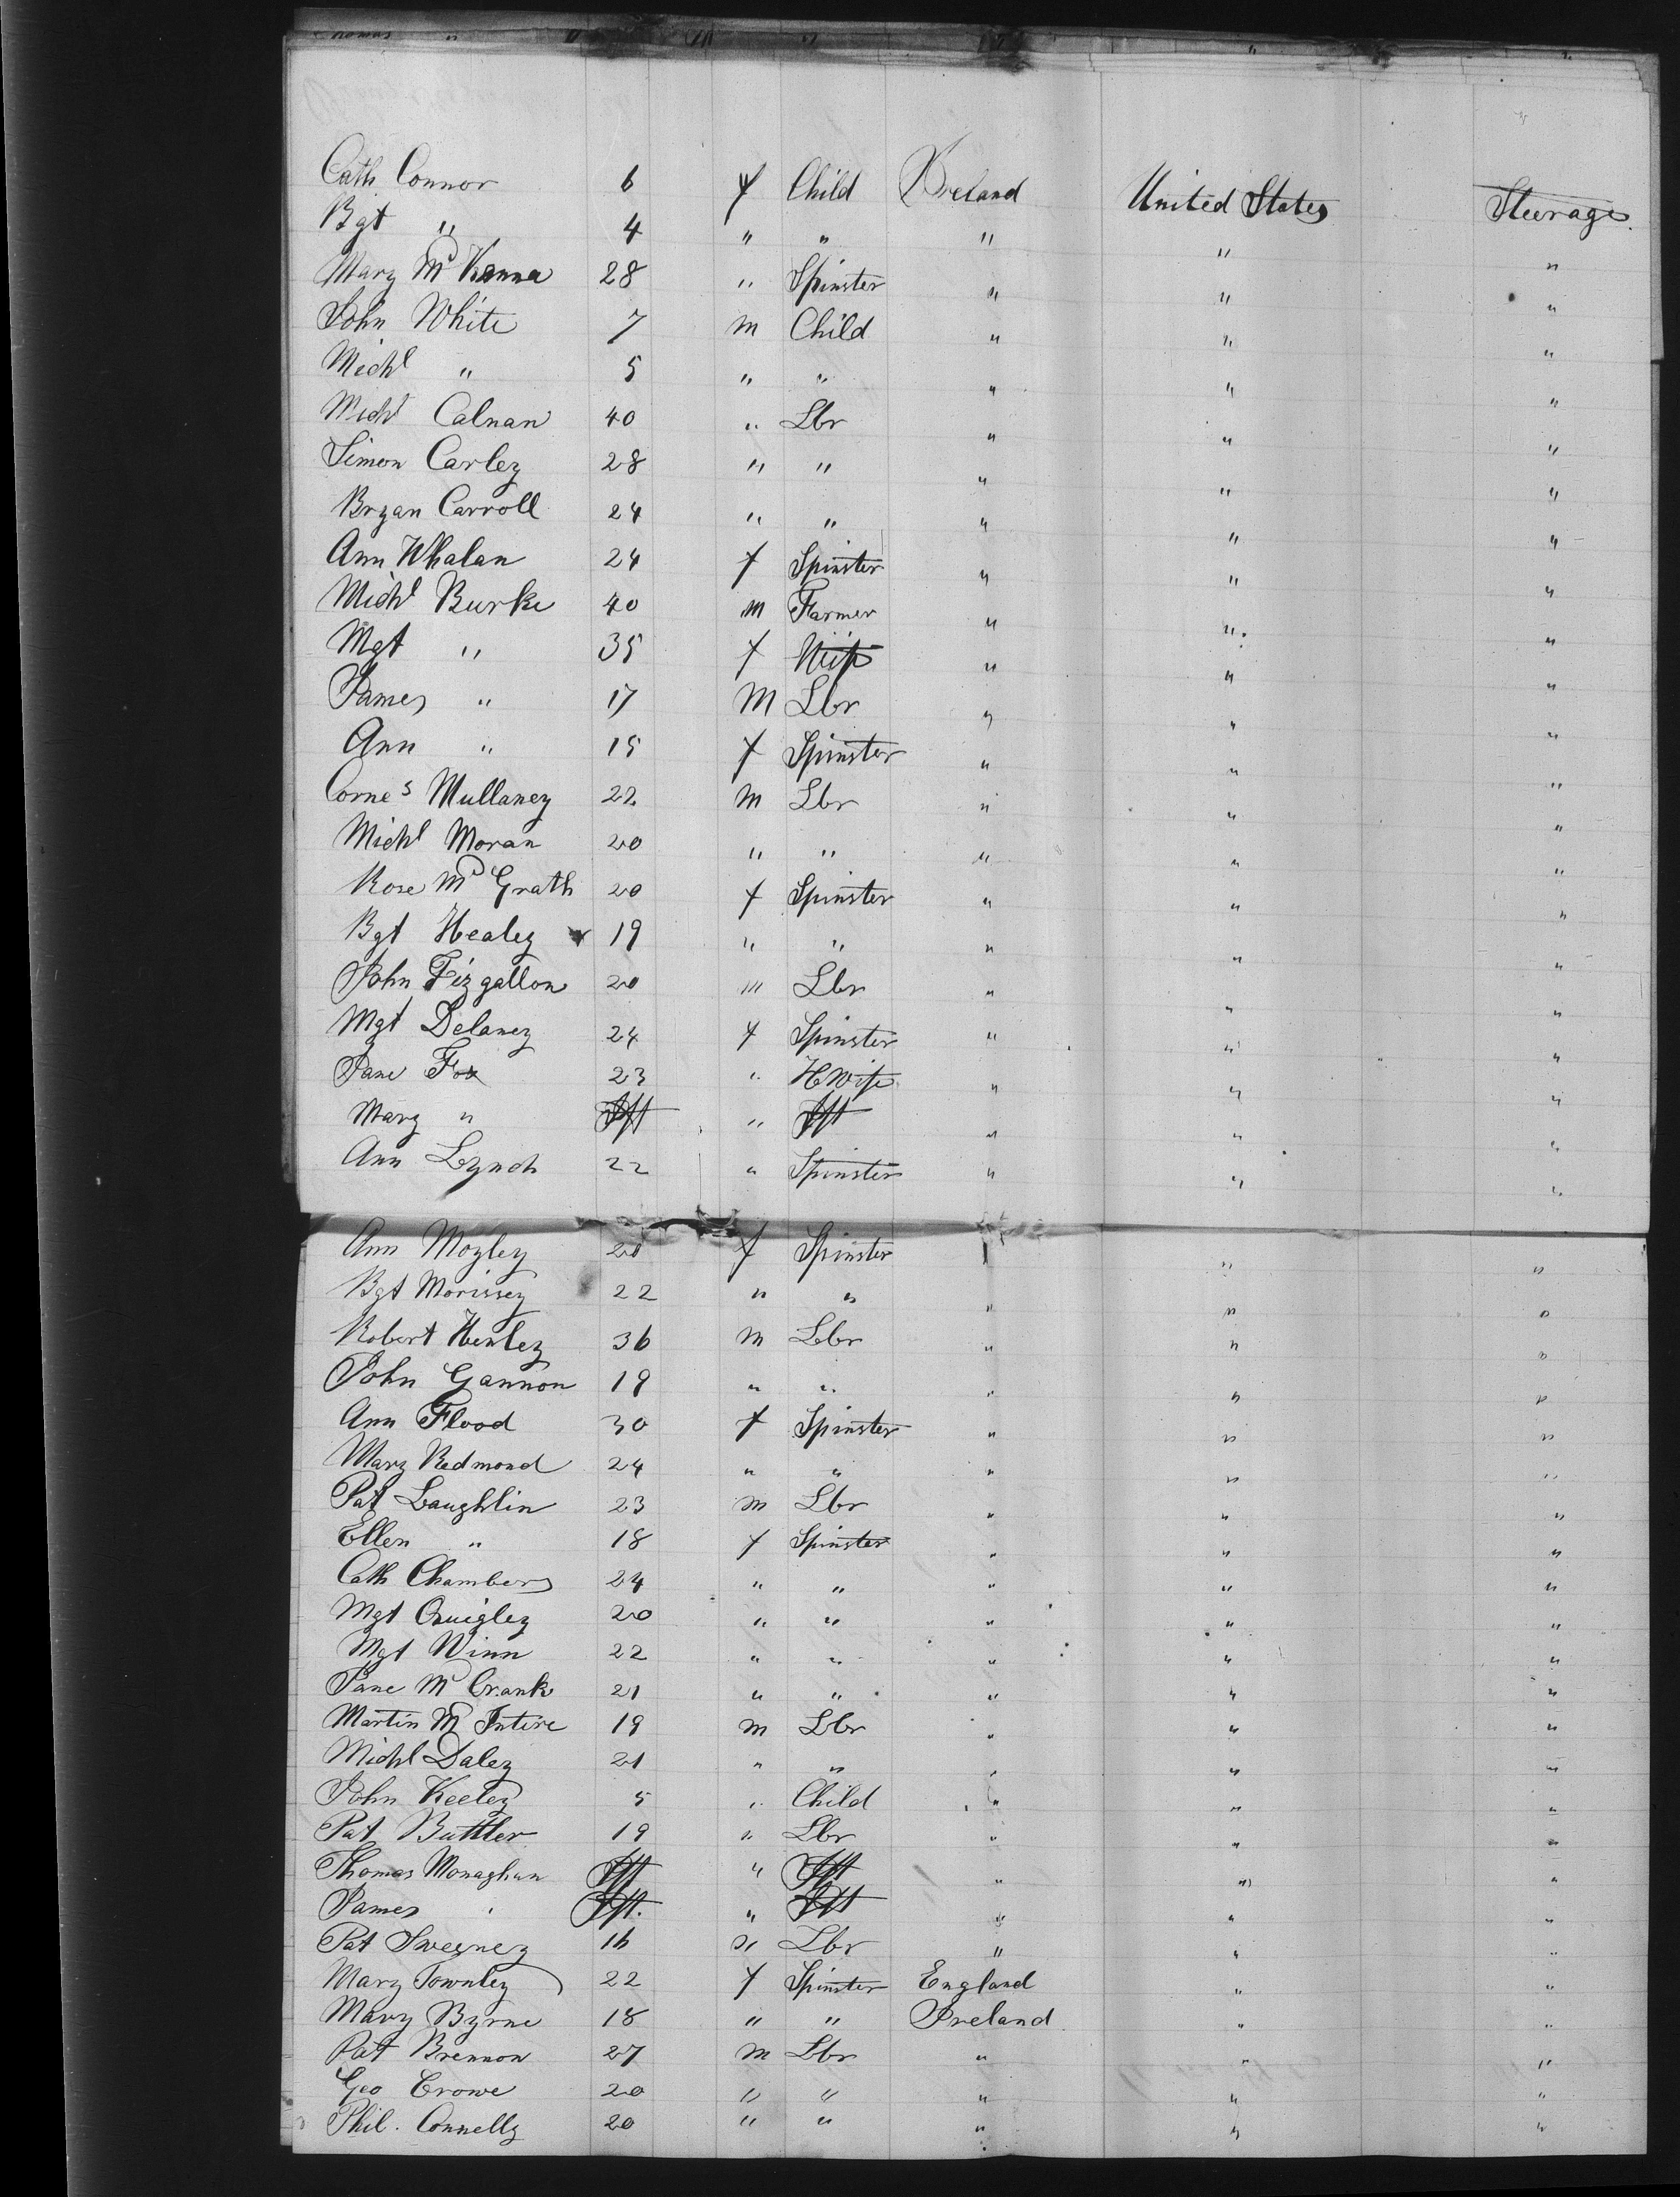 Thomas "
Cath Connor 6 f Child Ireland United States Steerage
Bgt " 4 " " " " "
Mary McKenna 28 " Spinster " " "
John White 7 m Child " " "
Michl " 5 " " " " "
Michl Calnan 40 " Lbr " " "
Simon Carley 28 " " " " "
Bryan Carroll 24 " " " " "
Ann Whalan 24 f Spinster " " "
Michl Burke 40 m Farmer " " "
Mgt " 35 f Wife " " "
James " 17 M Lbr " " "
Ann " 15 f Spinster " " "
Corne s Mullaney 22 m Lbr " " "
Michl Moran 20 " " " " "
Rose Mc Grath 20 f Spinster " " "
Bgt Healey 19 " " " " "
John Fizgallon 20 m Lbr " " "
Mgt Delaney 24 f Spinster " " "
Jane Fox 23 " HWife " " "
Mary " Ift " Ift " " "
Ann Lynch 22 " Spinster " " "
Ann Mozley 20 f Spinster " "
Bgt Morissey 22 " " " " "
Robert Henley 36 m Lbr " " "
John Gannon 19 " " " " "
Ann Flood 30 f Spinster " " "
Mary Redmond 24 " " " " "
Pat Laughlin 23 m Lbr " " "
Ellen " 18 f Spinster " " "
Cath Chambers 24 " " " " "
Mgt Quigley 20 " " " " "
Mgt Winn 22 " " " " "
Jane Mc Crank 21 " " " " "
Martin Mc Intire 19 m Lbr " " "
Michl Daley 21 " " " " "
John Keeley 5 " Child " " "
Pat Buttler 19 " Lbr " " "
Thomas Monaghan Ift " Ift " " "
James " Ift. " Ift " " "
Pat Sweeney 16 " Lbr " " "
Mary Townley 22 f Spinster England " "
Mary Byrne 18 " " Ireland " "
Pat Brennon 27 m Lbr " " "
Geo Crowe 20 " " " " "
Phil. Connelly 20 " " " " "